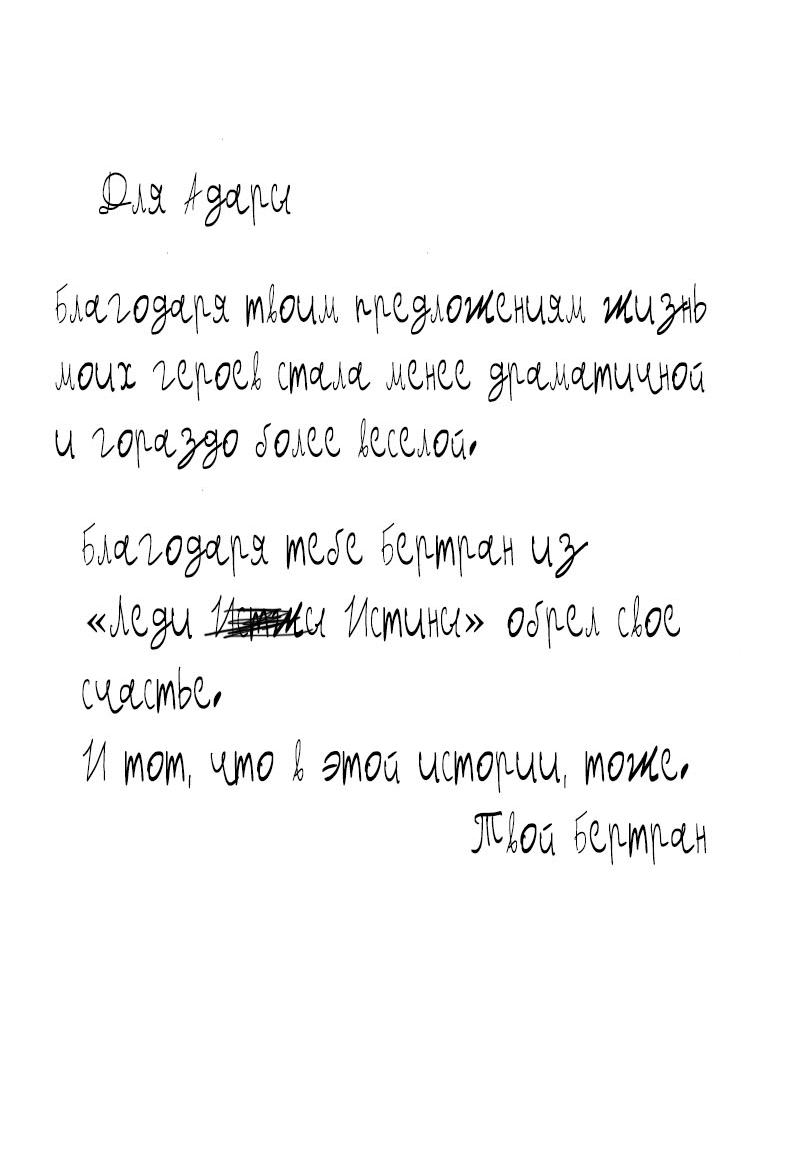 Для Адары
Благодаря твоим предложениям жизнь
моих героев стала менее драматичной
и гораздо более веселой.
Благодаря тебе Бертран из
«Леди Истины» обрел свое
счастье.
И тот, что в этой истории, тоже.
Твой Бертран